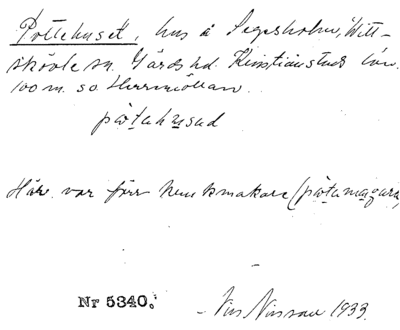 Pottehuset, hus å Segesholm, Witt-
skövle sn. Gärds hd. Kristianstads län.
100 m. so Herrmöllan.
påtahusad
Här var förr krukmakare (påtamagara)
Nr 5340.
Nils Nilsson 1933.